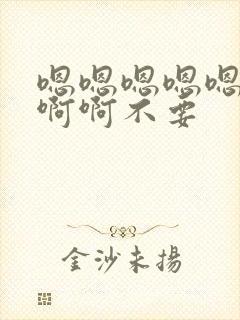 嗯嗯嗯嗯嗯
啊啊不要
金沙未揚